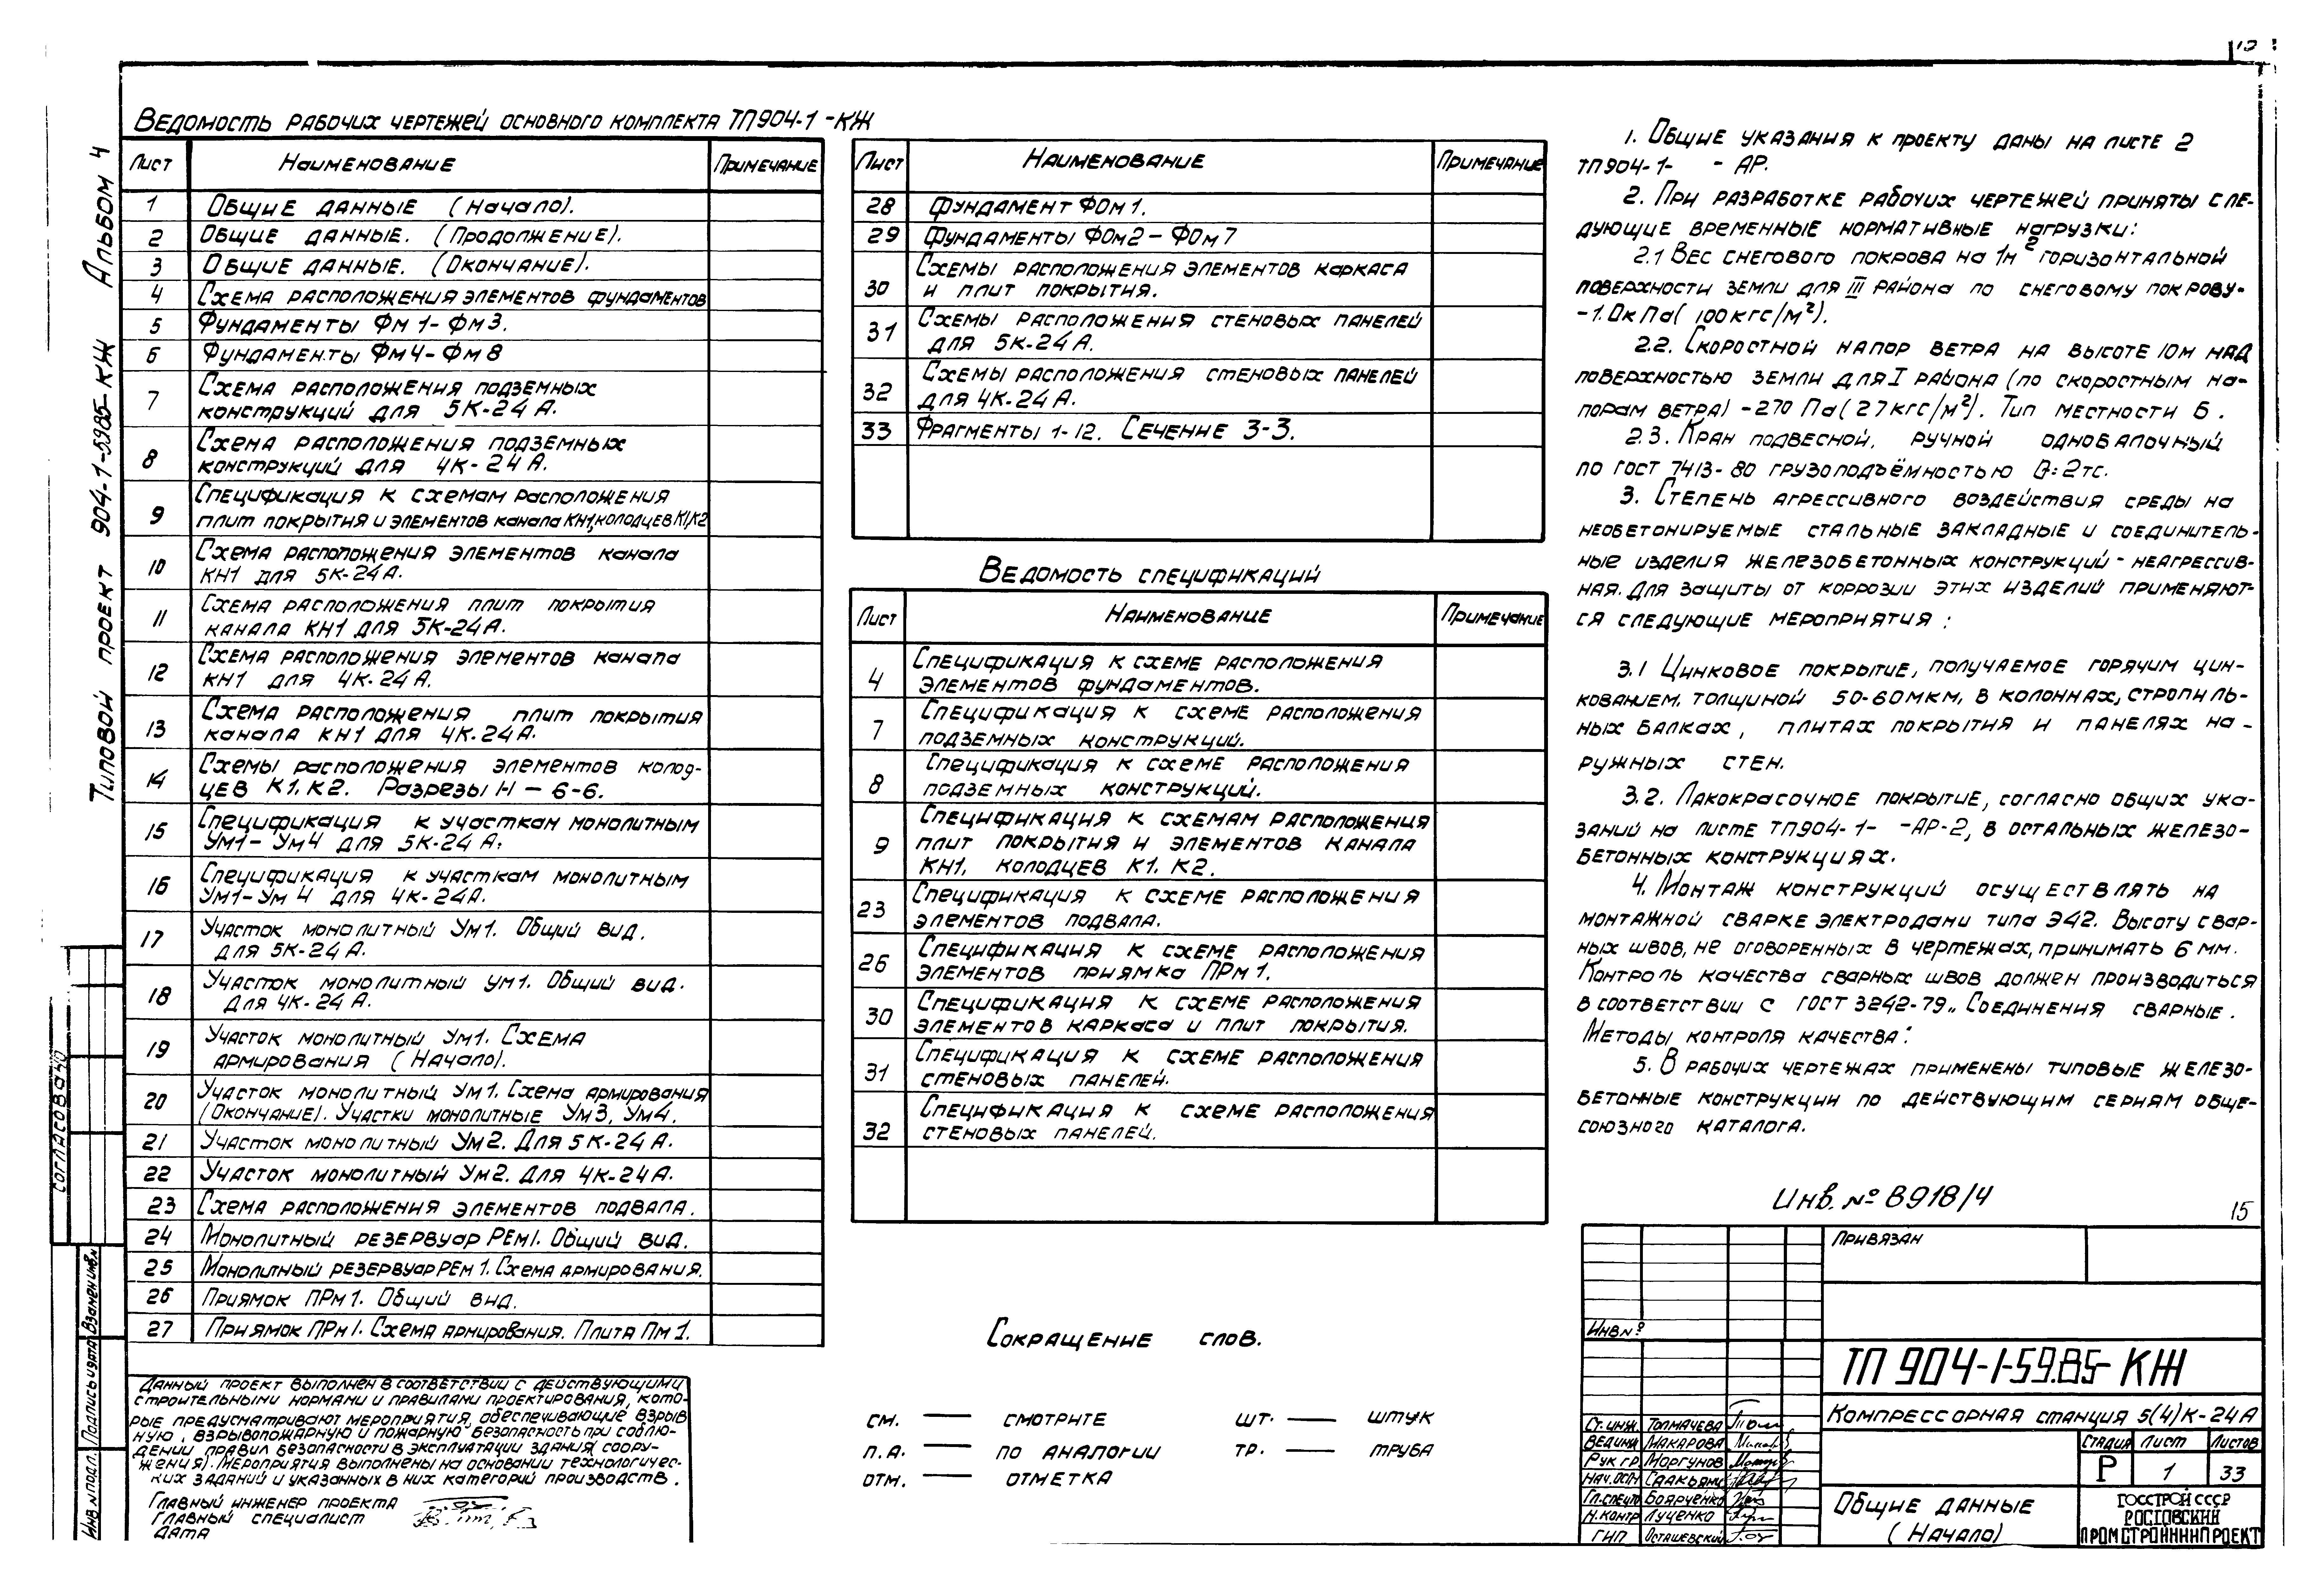 Типовой проект 904-1-59.85-КЖ Альбом 4
Ведомость рабочих чертежей основного комплекта ТП904-1 -КЖ
Лист Наименование Примечание
1 Общие данные (Начало).
2 Общие данные. (Продолжение).
3 Общие данные. (Окончание).
4 Схема расположения элементов фундаментов
5 Фундаменты Фм1-Фм3.
6 Фундаменты Фм4-Фм8
7 Схема расположения подземных
конструкций для 5К-24А.
8 Схема расположения подземных
конструкций для 4К-24А.
9 Спецификация к схемам расположения
плит покрытия и элементов канала КН1, колодцев К1, К2
10 Схема расположения элементов канала
КН1 для 5К-24А.
11 Схема расположения плит покрытия
канала КН1 для 5К-24А.
12 Схема расположения элементов канала
КН1 для 4К-24А.
13 Схема расположения плит покрытия
канала КН1 для 4К-24А.
14 Схемы расположения элементов колод-
цев К1, К2. Разрезы 1-1 — 6-6.
15 Спецификация к участкам монолитным
Ум1-Ум4 для 5К-24А.
16 Спецификация к участкам монолитным
Ум1-Ум4 для 4К-24А.
17 Участок монолитный Ум1. Общий вид.
для 5К-24А.
18 Участок монолитный Ум1. Общий вид.
для 4К-24А.
19 Участок монолитный Ум1. Схема
армирования (Начало).
20 Участок монолитный Ум1. Схема армирования
(Окончание). Участки монолитные Ум3, Ум4.
21 Участок монолитный Ум2. Для 5К-24А.
22 Участок монолитный Ум2. Для 4К-24А.
23 Схема расположения элементов подвала.
24 Монолитный резервуар РЕм1. Общий вид.
25 Монолитный резервуар РЕм1. Схема армирования.
26 Приямок ПРм1. Общий вид.
27 Приямок ПРм1. Схема армирования. Плита Пм1.
Данный проект выполнен в соответствии с действующими
строительными нормами и правилами проектирования, кото-
рые предусматривают мероприятия, обеспечивающие взрыв
ную, взрывопожарную и пожарную безопасность при соблю-
дении правил безопасности в эксплуатации здания (соору-
жения). Мероприятия выполнены на основании технологичес-
ких заданий и указанных в них категорий производств.
Главный инженер проекта
Главный специалист
Дата
Лист Наименование Примечание
28 Фундамент ФОм1.
29 Фундаменты ФОм2-ФОм7
30 Схемы расположения элементов каркаса
и плит покрытия.
31 Схемы расположения стеновых панелей
для 5К-24А.
32 Схемы расположения стеновых панелей
для 4К-24А.
33 Фрагменты 1-12. Сечение 3-3.
Ведомость спецификаций
Лист Наименование Примечание
4 Спецификация к схеме расположения
элементов фундаментов.
7 Спецификация к схеме расположения
подземных конструкций.
8 Спецификация к схеме расположения
подземных конструкций.
9 Спецификация к схемам расположения
плит покрытия и элементов канала
КН1, колодцев К1, К2.
23 Спецификация к схеме расположения
элементов подвала.
26 Спецификация к схеме расположения
элементов приямка ПРм1.
30 Спецификация к схеме расположения
элементов каркаса и плит покрытия.
31 Спецификация к схеме расположения
стеновых панелей.
32 Спецификация к схеме расположения
стеновых панелей.
Сокращение слов.
см. — смотрите шт. — штук
п.а. — по аналогии тр. — труба
отм. — отметка
1. Общие указания к проекту даны на листе 2
ТП904-1- - АР.
2. При разработке рабочих чертежей приняты сле-
дующие временные нормативные нагрузки:
2.1 Вес снегового покрова на 1м² горизонтальной
поверхности земли для III района по снеговому покрову-
-1.0кПа (100кгс/м²).
2.2. Скоростной напор ветра на высоте 10м над
поверхностью земли для I района (по скоростным на-
порам ветра) -270Па (27кгс/м²). Тип местности Б.
2.3. Кран подвесной, ручной однобалочный
по ГОСТ 7413-80 грузоподъёмностью Q=2тс.
3. Степень агрессивного воздействия среды на
необетонируемые стальные закладные и соединитель-
ные изделия железобетонных конструкций - неагрессив-
ная. Для защиты от коррозии этих изделий применяют-
ся следующие мероприятия:
3.1 Цинковое покрытие, получаемое горячим цин-
кованием, толщиной 50-60мкм, в колоннах, стропиль-
ных балках, плитах покрытия и панелях на-
ружных стен.
3.2. Лакокрасочное покрытие, согласно общих ука-
заний на листе ТП904-1- -АР-2, в остальных железо-
бетонных конструкциях.
4. Монтаж конструкций осуществлять на
монтажной сварке электродами типа Э42. Высоту свар-
ных швов, не оговоренных в чертежах, принимать 6 мм.
Контроль качества сварных швов должен производиться
в соответствии с ГОСТ 3242-79 „Соединения сварные.
Методы контроля качества".
5. В рабочих чертежах применены типовые железо-
бетонные конструкции по действующим сериям обще-
союзного каталога.
Инв. № 8918/4
15
Привязан
Инв №
ТП 904-1-59.85-КЖ
Компрессорная станция 5(4)К-24А
Стадия Лист Листов
Р 1 33
Общие данные
(Начало)
Госстрой СССР
Ростовский
Промстройниипроект
Ст. инж. Толмачева
Вед. инж Макарова
Рук. гр. Моргунов
Нач. осп Саакьянц
Гл. спец Боярченко
Н. контр Луценко
ГИП Осташевский
Согласовано
Инв. № подл. Подпись и дата Взамен инв. №